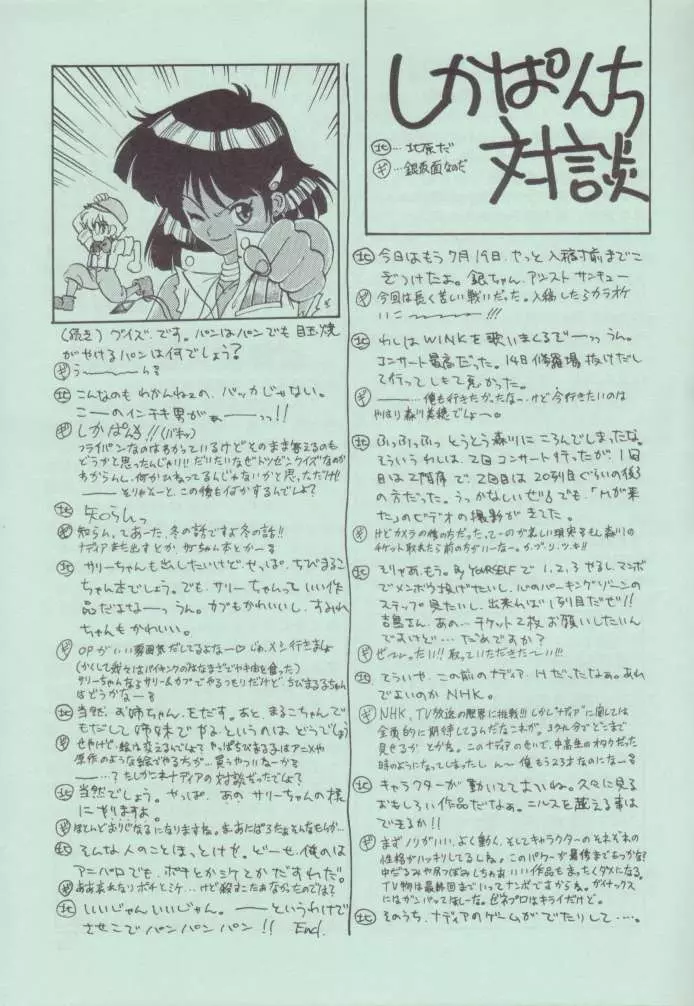 しかぱんち
対談
北…北原だ
ギ…銀仮面なのだ
北 今日はもう7月19日.やっと入稿寸前までこ
ぎつけたよ。銀ちゃん.アシストサンキュー
ギ 今回は長く苦しい戦いだった。入稿したらカラオケ
いこーーー!!!
北 わしはWINKを歌いまくるでーっっうん。
コンサート最高だった。14日修羅場抜けだし
て行ってしもて良かった。
ギ ーーー…俺も行きたかったな~.けど今行きたいのは
やはり森川美穂でしょ~。
北 ふっふっふっとうとう森川にころんでしまったな。
そういうわしは、2回コンサート行ったが、1回
目は2階席で、2回目は20列目ぐらいの後ろ
の方だった。うっかなしいぜ!!でも、「Mが来
た」のビデオの撮影がきてた。
ギ けどカメラの後の方だった.てーのが悲しい現実
チケット取れたら前の方がいーなー。
北 そりゃあ.もう。By YOURSELFで1,2,3やるし、マンボ
でメンボウ投げたいし、心のパーキングゾーンの
ステップ見たいし、出来れば1列目だぜ!!
吉島さん、あの…チケット2枚お願いしたいん
ですけど…だめですか?
ギ ぜーったい!!取っていただきたーい!!
北 そういや、この前のナディア、Hだったなあ。あれ
でよいのかNHK。
ギ NHK、TV放送の限界に挑戦!!しかし"ナディア"に関しては
全面的に期待してるんだなこれが。39話でどこまで
見せるかとかね。このナディアのせいで、中高生のオタクだった
時のようになってしまったしん~俺もう23才なのになーる
北 キャラクターが動いててよいね。久々に見る
おもしろい作品だなぁ。ニルスを越える事は
できるか!!
ギ まずノリがいい.よく動く.そしてキャラクターのそれぞれの
性格がハッキリしてるしね。このパワーが最後まであっかな?
中だるみや尻つぼみしちゃあいい作品もまったくダメになる。
TV物は最終回までいってナンボですからね。ガイナックス
にはガンバッてほしーな。ゼネプロはキライだけど。
北 そのうち、ナディアのゲームがでたりして…。
(続き)クイズ.です。パンはパンでも目玉焼
がやけるパンは何でしょう?
ギ うーーーんる
北 こんなのもわかんねェの、バッカじゃない。
こーのインチキ男がぁーーっっ!!
ギ しかぱんち!!(バキッ)
フライパンなのはわかっているけどそのまま答えるのも
どうかと思ったんじゃい!!だいたいなぜトツゼンクイズなのか
わからんし、何かひねってるんじゃないかと思っただけ!!
ーーそりゃそーと、この後も何かするんでしょ?
北 知らんっ
ギ 知らん.てあーた、冬の話ですよ冬の話!!
ナディアまた出すとか、サリーちゃん本とかーる
北 サリーちゃんも出したいけど、やっぱ、ちびまるこ
ちゃん本でしょう。でも、サリーちゃんっていい作
品だよなーっうん。カブもかわいいし、すみれ
ちゃんもかわいい。
ギ OPがいい雰囲気だしてるよなー♡じゃ.メシ行きましょ
(かくして我々はバイキングのみなまざでヤキ肉を食った)
サリーちゃんならサリー&カブでやるつもりだけど、ちびまる子ちゃん
はどうかなーる
北 当然、お姉ちゃん.をだす。あと、まるこちゃんで
もだして姉妹でやる.というのはどうでしょう
ギ せやけど.絵は変えるんでしょ?やっぱちびまる子はアニメや
原作のような絵でやる方が…買うやついなーる
ーー…?たしかこれナディアの対談だったでしょ?
北 当然でしょう。やっぱ、あのサリーちゃんの様
にやりますよ。
ギ ほとんどおりじなるになりますね。まーあにぱろだぁそんなもんか…
北 そんな人のことほっとけゃ。どーせ、俺のは
アニパロでも、ポチとかミケとかだすわだ。
ギ ああ哀れなりポチとミケ…けど殺すこたあなかったのでは?
北 いいじゃんいいじゃん。ーーというわけで
させこでパンパンパン!! End.